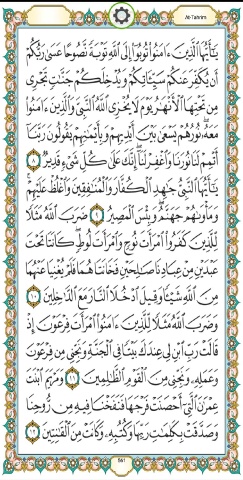 At-Tahrim
يَٰٓأَيُّهَا ٱلَّذِينَ ءَامَنُوا۟ تُوبُوٓا۟ إِلَى ٱللَّهِ تَوْبَةً نَّصُوحًا عَسَىٰ رَبُّكُمْ
أَن يُكَفِّرَ عَنكُمْ سَيِّـَٔاتِكُمْ وَيُدْخِلَكُمْ جَنَّٰتٍ تَجْرِى
مِن تَحْتِهَا ٱلْأَنْهَٰرُ يَوْمَ لَا يُخْزِى ٱللَّهُ ٱلنَّبِىَّ وَٱلَّذِينَ ءَامَنُوا۟
مَعَهُۥ نُورُهُمْ يَسْعَىٰ بَيْنَ أَيْدِيهِمْ وَبِأَيْمَٰنِهِمْ يَقُولُونَ رَبَّنَآ
أَتْمِمْ لَنَا نُورَنَا وَٱغْفِرْ لَنَآ إِنَّكَ عَلَىٰ كُلِّ شَىْءٍ قَدِيرٌ ٨
يَٰٓأَيُّهَا ٱلنَّبِىُّ جَٰهِدِ ٱلْكُفَّارَ وَٱلْمُنَٰفِقِينَ وَٱغْلُظْ عَلَيْهِمْ
وَمَأْوَىٰهُمْ جَهَنَّمُ وَبِئْسَ ٱلْمَصِيرُ ٩ ضَرَبَ ٱللَّهُ مَثَلًا
لِّلَّذِينَ كَفَرُوا۟ ٱمْرَأَتَ نُوحٍ وَٱمْرَأَتَ لُوطٍ كَانَتَا تَحْتَ
عَبْدَيْنِ مِنْ عِبَادِنَا صَٰلِحَيْنِ فَخَانَتَاهُمَا فَلَمْ يُغْنِيَا عَنْهُمَا
مِنَ ٱللَّهِ شَيْـًٔا وَقِيلَ ٱدْخُلَا ٱلنَّارَ مَعَ ٱلدَّٰخِلِينَ ١٠
وَضَرَبَ ٱللَّهُ مَثَلًا لِّلَّذِينَ ءَامَنُوا۟ ٱمْرَأَتَ فِرْعَوْنَ إِذْ
قَالَتْ رَبِّ ٱبْنِ لِى عِندَكَ بَيْتًا فِى ٱلْجَنَّةِ وَنَجِّنِى مِن فِرْعَوْنَ
وَعَمَلِهِۦ وَنَجِّنِى مِنَ ٱلْقَوْمِ ٱلظَّٰلِمِينَ ١١ وَمَرْيَمَ ٱبْنَتَ
عِمْرَٰنَ ٱلَّتِىٓ أَحْصَنَتْ فَرْجَهَا فَنَفَخْنَا فِيهِ مِن رُّوحِنَا
وَصَدَّقَتْ بِكَلِمَٰتِ رَبِّهَا وَكُتُبِهِۦ وَكَانَتْ مِنَ ٱلْقَٰنِتِينَ ١٢
561